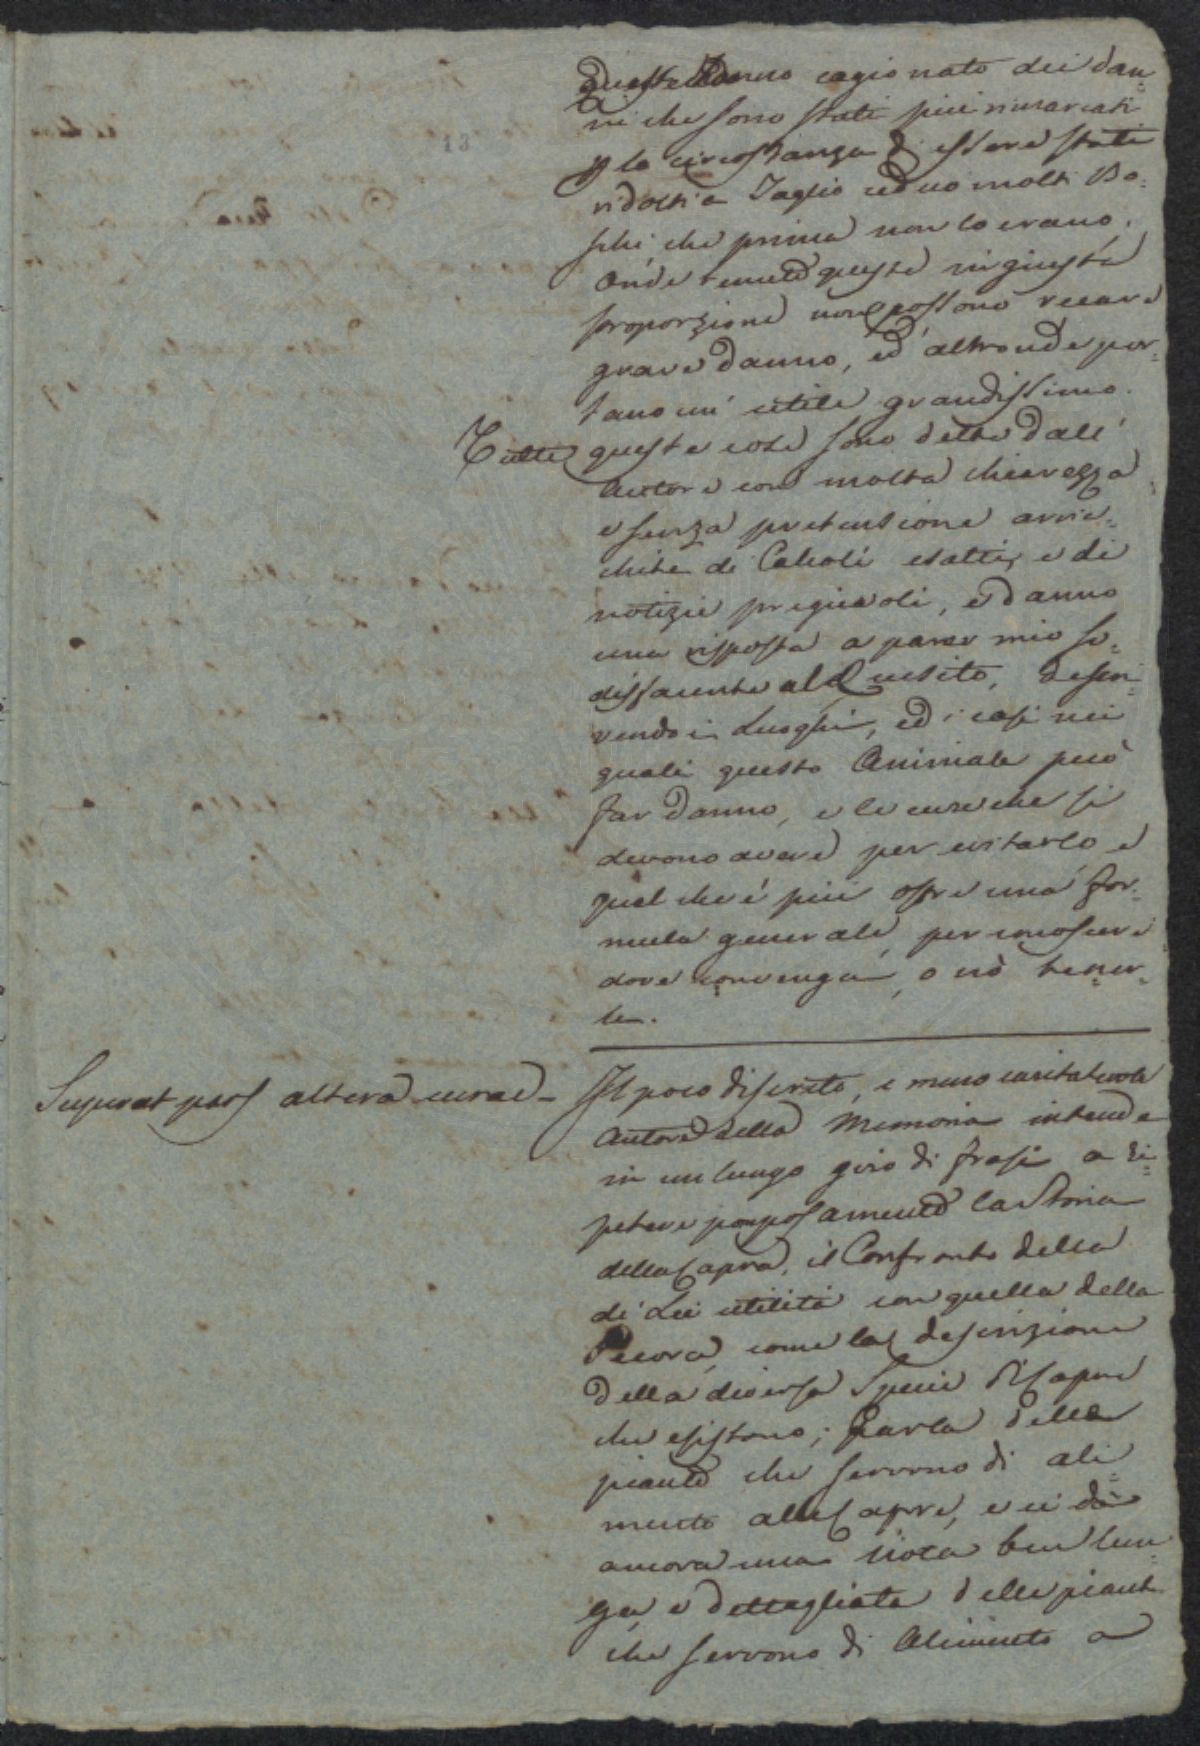 queste Hanno cagionato dei dan=
ni che sono stati più rimarcati
p la circostanza di essere stati
ridotti a Taglio ceduo molti Bo=
schi, che prima non lo erano.
Onde tenute queste in giusta
proporzione non possono recare
grave danno, ed altronde por=
tano un' utile grandissimo.
Tutte queste cose sono dette dall'
Autore con molta chiarezza
e senza pretensione arric=
chite di Calcoli esatti, e di
notizie pregievoli, e danno
una risposta a parer mio so=
disfacente al Quesito, descri=
vendo i Luoghi, ed i casi nei
quali questo Animale può
far danno, e le cure che si
devono avere per evitarlo e
quel che è più offre una for=
mula generale, per conoscere
dove convenga, o nò tener=
le.
Superat pars altera curae - Il poco discreto, e meno caritatevole
Autore della Memoria intende
in un lungo giro di frasi a ri=
petere pomposamente la Storia
della Capra, il Confronto della
di Lei utilità con quella della
Pecora, come la descrizione
della diversa Specie di Capre
che esistono; parla delle
piante che servono di ali=
mento alle Capre, e ci dà
ancora una nota ben lun=
ga e dettagliata delle piante
che servono di Alimento a